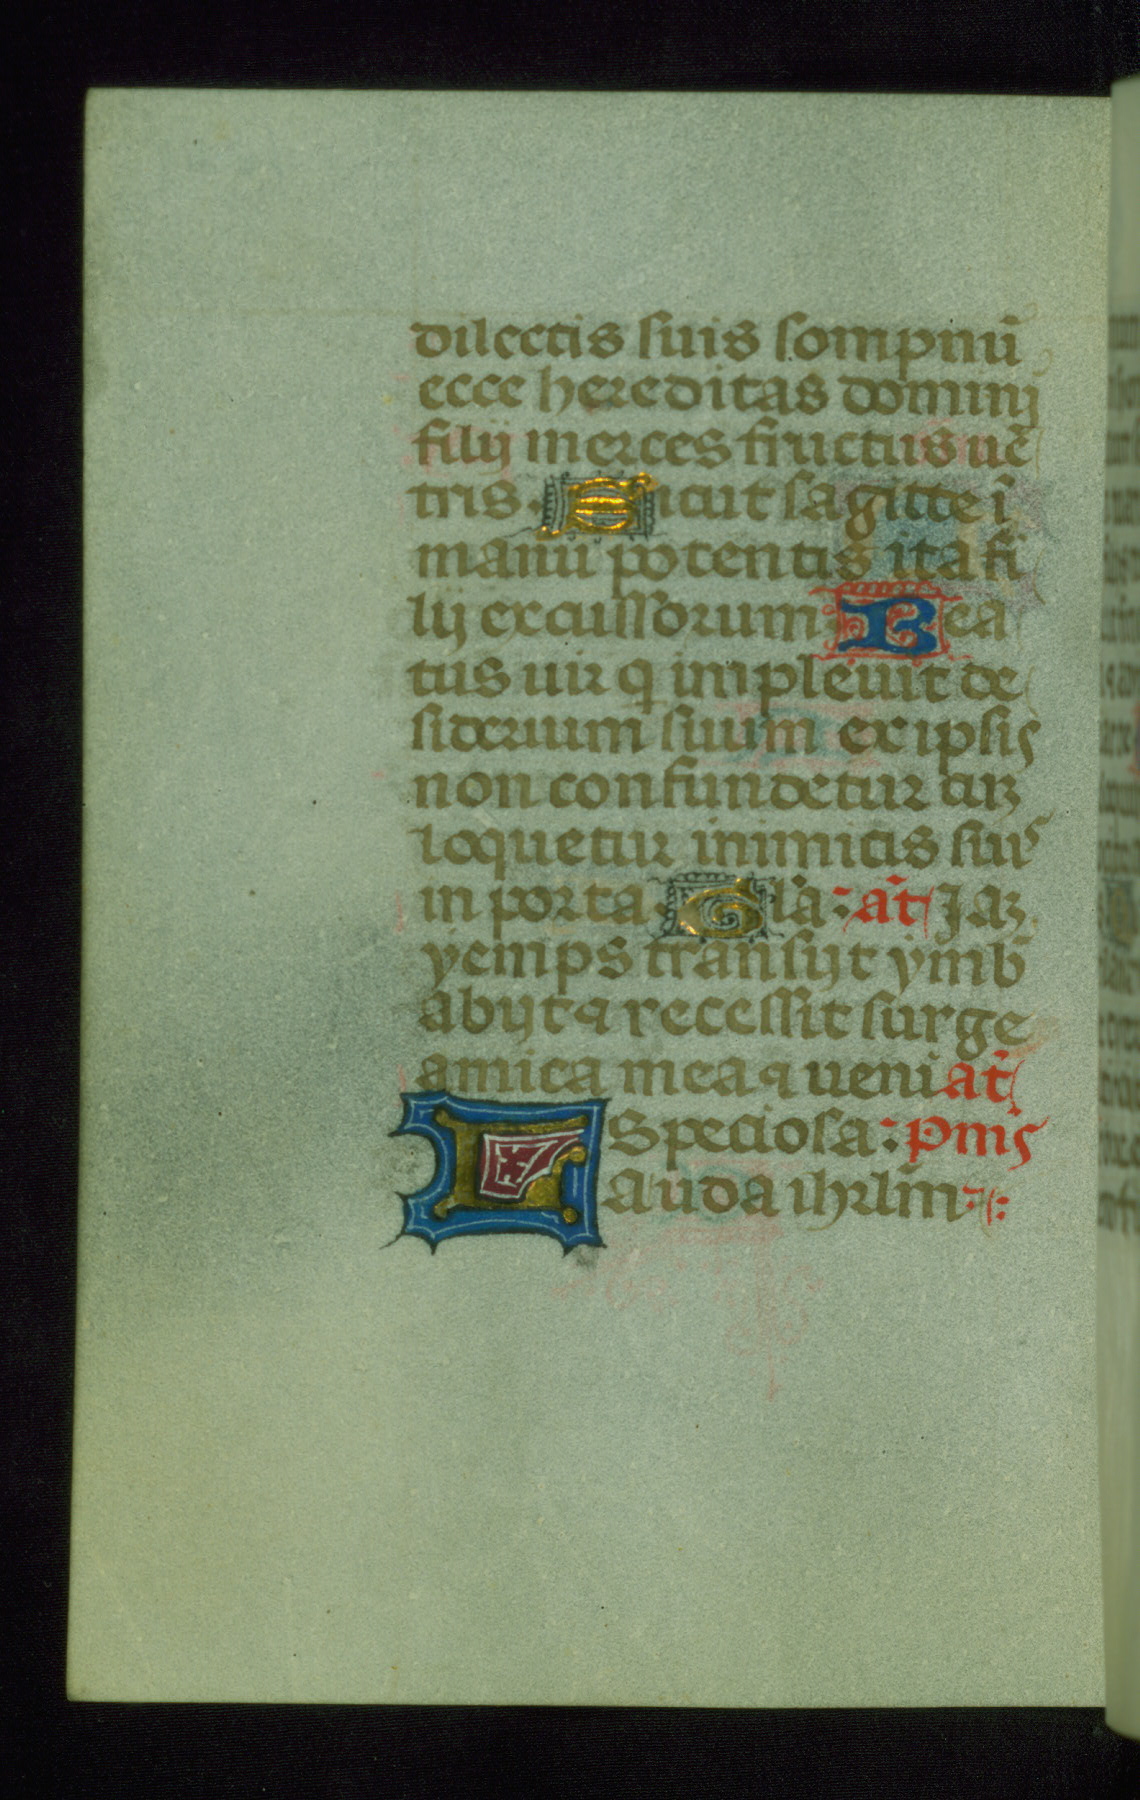 dilectis suis sompnū
ecce hereditas dominj
filij merces fructus uē
tris. Sicut sagitte ī
manu potentis ita fi
lij excussorum Bea
tus uir q̄ impleuit de
siderium suum ex ipsis
non confundetur cūz
loquetur inimicis suis
in porta. Glā: añ Jaz
yemps transijt ymb
abijt ⁊ recessit surge
amica mea ⁊ ueni añ
Speciosa: Pm̄s
Lauda ihrlm̄